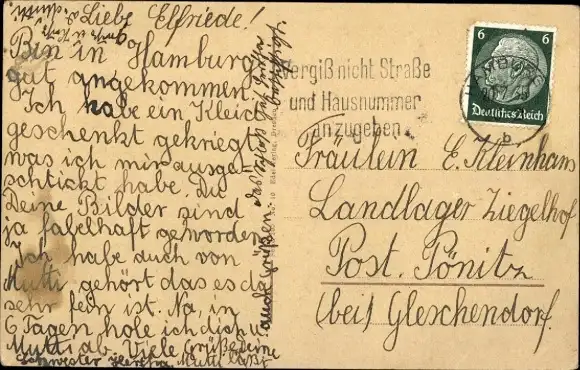 Liebe Elfriede!
Bin in Hamburg
gut angekommen.
Ich habe ein Kleid
geschenkt gekriegt
was ich mir ausge-
schtickt habe. Du
Deine Bilder sind
ja fabelhaft geworden
Ich habe auch von
Mutti gehört das es da
sehr fein ist. Na, in
6 Tagen hole ich dich u.
Mutti ab. Viele Grüße deine
Schwester Hertha Mutti läßt
auch grüßen
Vergiß nicht Straße
und Hausnummer
anzugeben
HAMBURG
b
6 6
Deutsches Reich
Fräulein E. Kleinhans
Landlager Ziegelhof
Post. Pönitz
(bei) Gleschendorf.